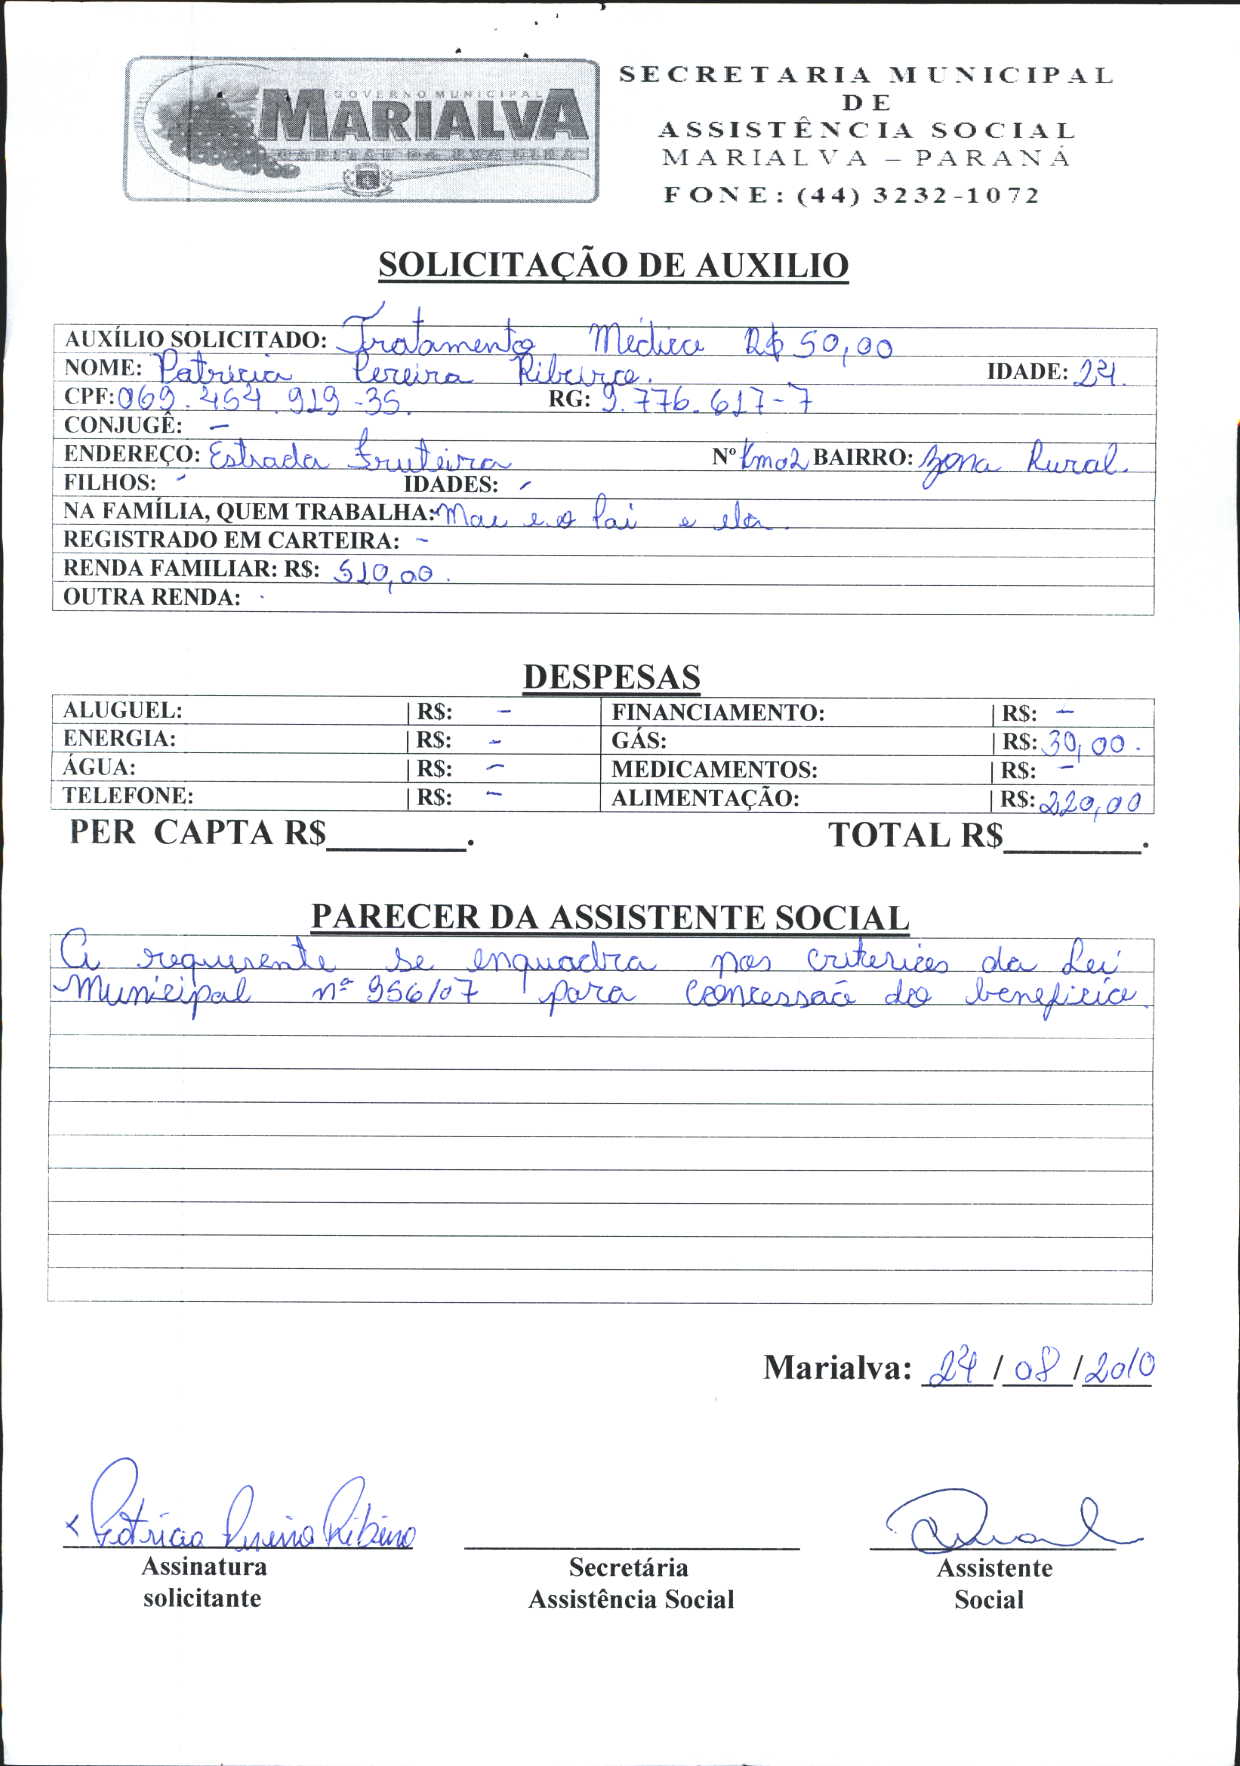 GOVERNO MUNICIPAL
MARIALVA
CAPITAL DA UVA FINA
SECRETARIA MUNICIPAL
DE
ASSISTÊNCIA SOCIAL
MARIALVA – PARANÁ
FONE: (44) 3232-1072
SOLICITAÇÃO DE AUXILIO
AUXÍLIO SOLICITADO: Tratamento Médico R$ 50,00
NOME: Patricia Pereira Ribeiro. IDADE: 24.
CPF: 069.454.919-35. RG: 9.776.617-7
CONJUGÊ: –
ENDEREÇO: Estrada Fruteira Nº Km02 BAIRRO: Zona Rural.
FILHOS: - IDADES: -
NA FAMÍLIA, QUEM TRABALHA: Mae e o Pai e ela.
REGISTRADO EM CARTEIRA: -
RENDA FAMILIAR: R$: 510,00.
OUTRA RENDA: -
DESPESAS
ALUGUEL: | R$: – FINANCIAMENTO: | R$: –
ENERGIA: | R$: – GÁS: | R$: 30,00.
ÁGUA: | R$: – MEDICAMENTOS: | R$: –
TELEFONE: | R$: – ALIMENTAÇÃO: | R$: 220,00
PER CAPTA R$________. TOTAL R$________.
PARECER DA ASSISTENTE SOCIAL
A requerente se enquadra nos criterios da Lei
Municipal nº 956/07 para concessão do beneficio.
Marialva: 24 / 08 / 2010
x Patricia Pereira Ribeiro
Assinatura Secretária Assistente
solicitante Assistência Social Social